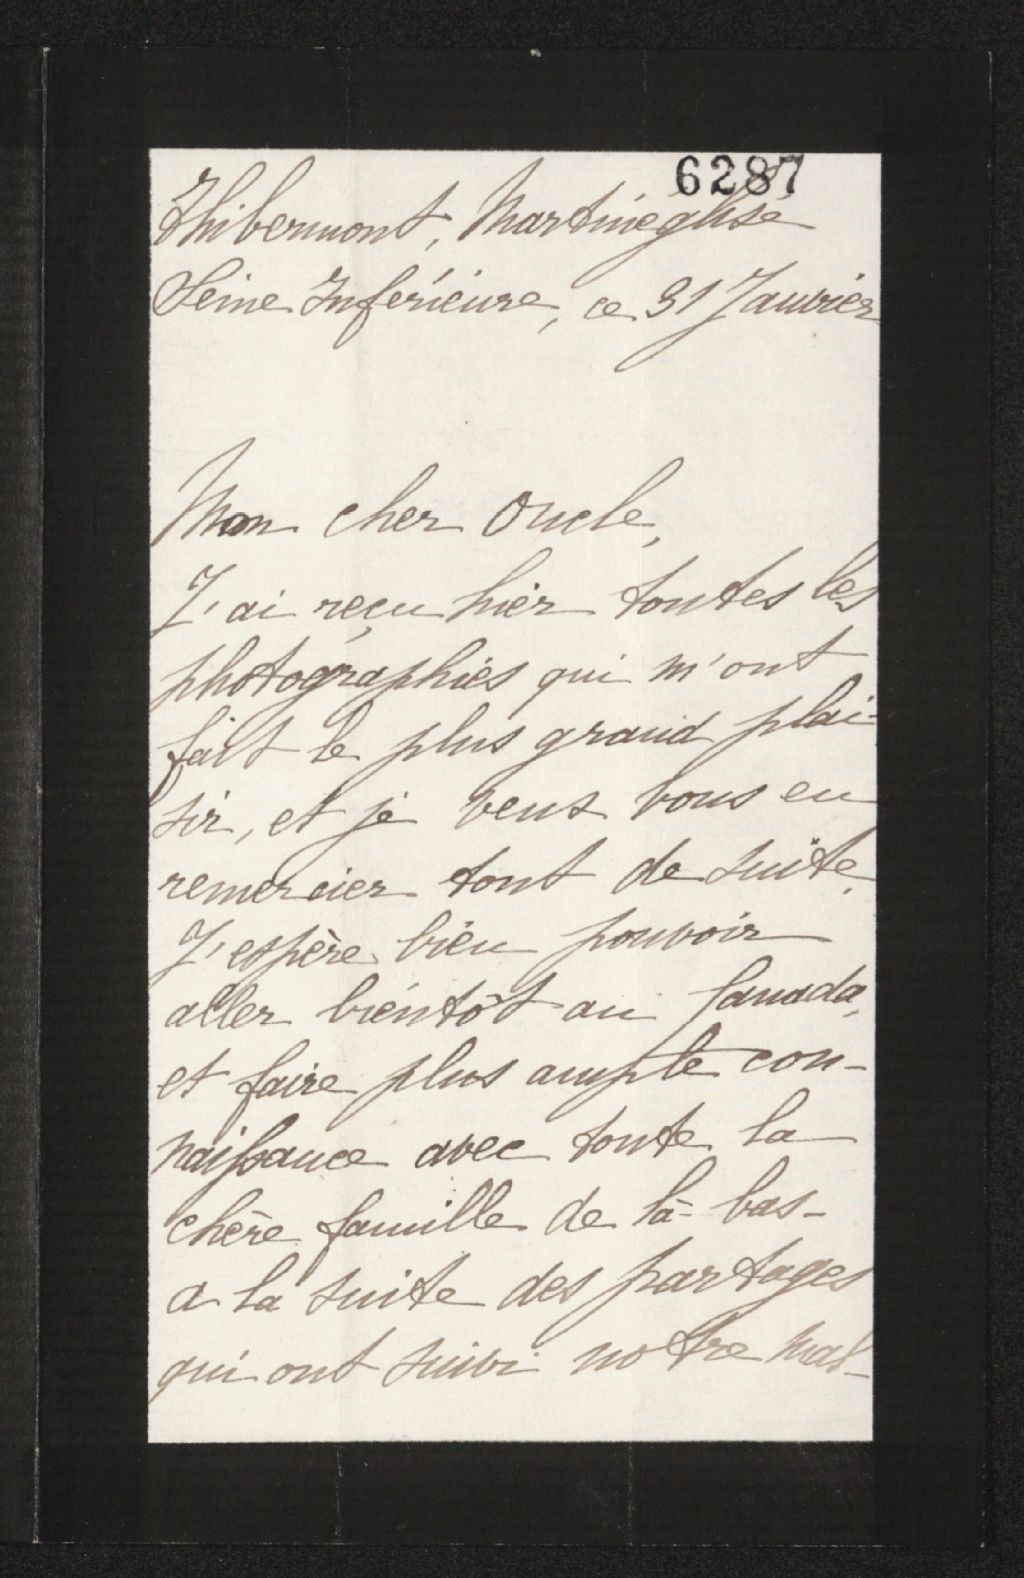 6287
Thibermont, Martineglise
Seine Inférieure, ce 31 Janvier
Mon cher Oncle,
J'ai reçu hier toutes les
photographies qui m'ont
fait le plus grand plai-
sir, et je veux vous en
remercier tout de suite.
J'espère bien pouvoir
aller bientôt au Canada,
et faire plus ample con-
naissance avec toute la
chère famille de là-bas-
a la suite des partages
qui ont suivi notre mal-